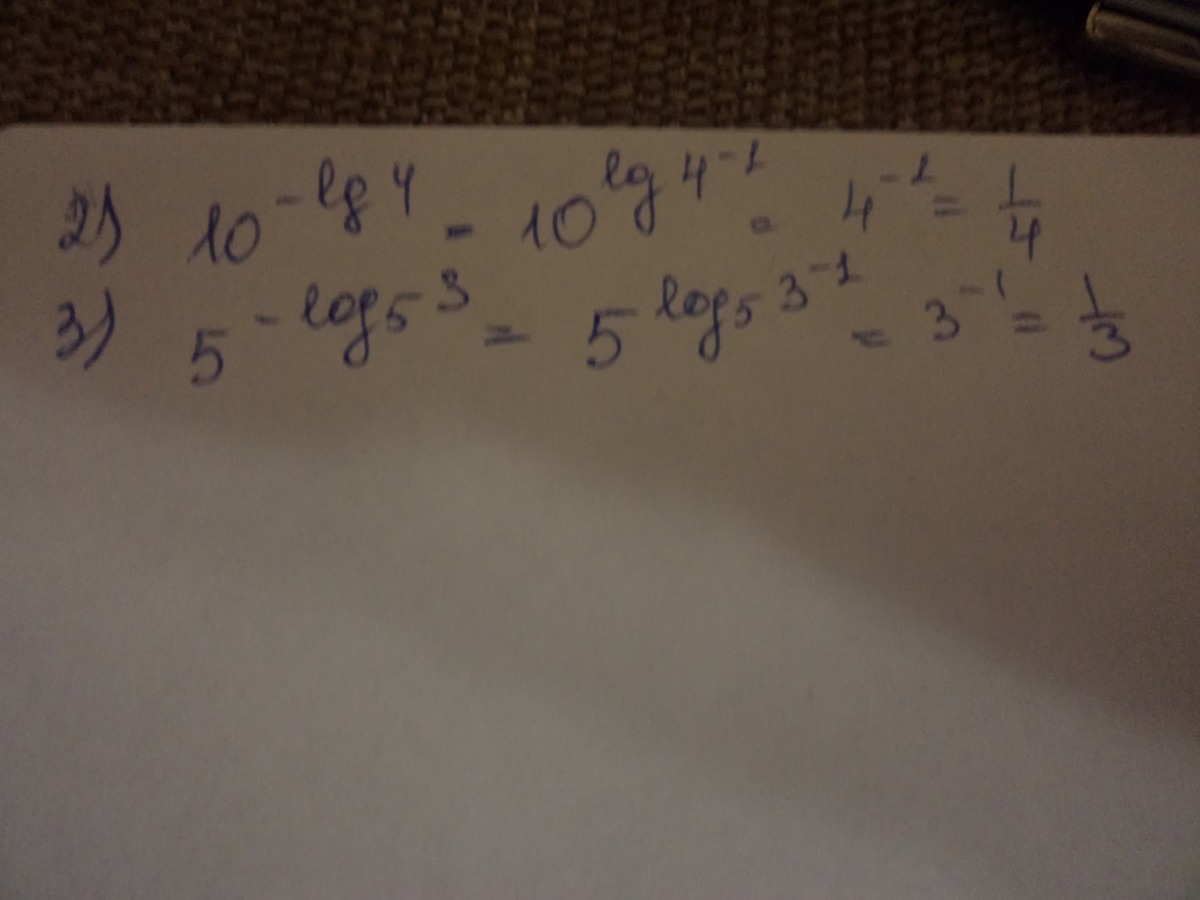 2) 10^{-lg 4} = 10^{lg 4^{-1}} = 4^{-1} = 1/4
3) 5^{-log_5 3} = 5^{log_5 3^{-1}} = 3^{-1} = 1/3